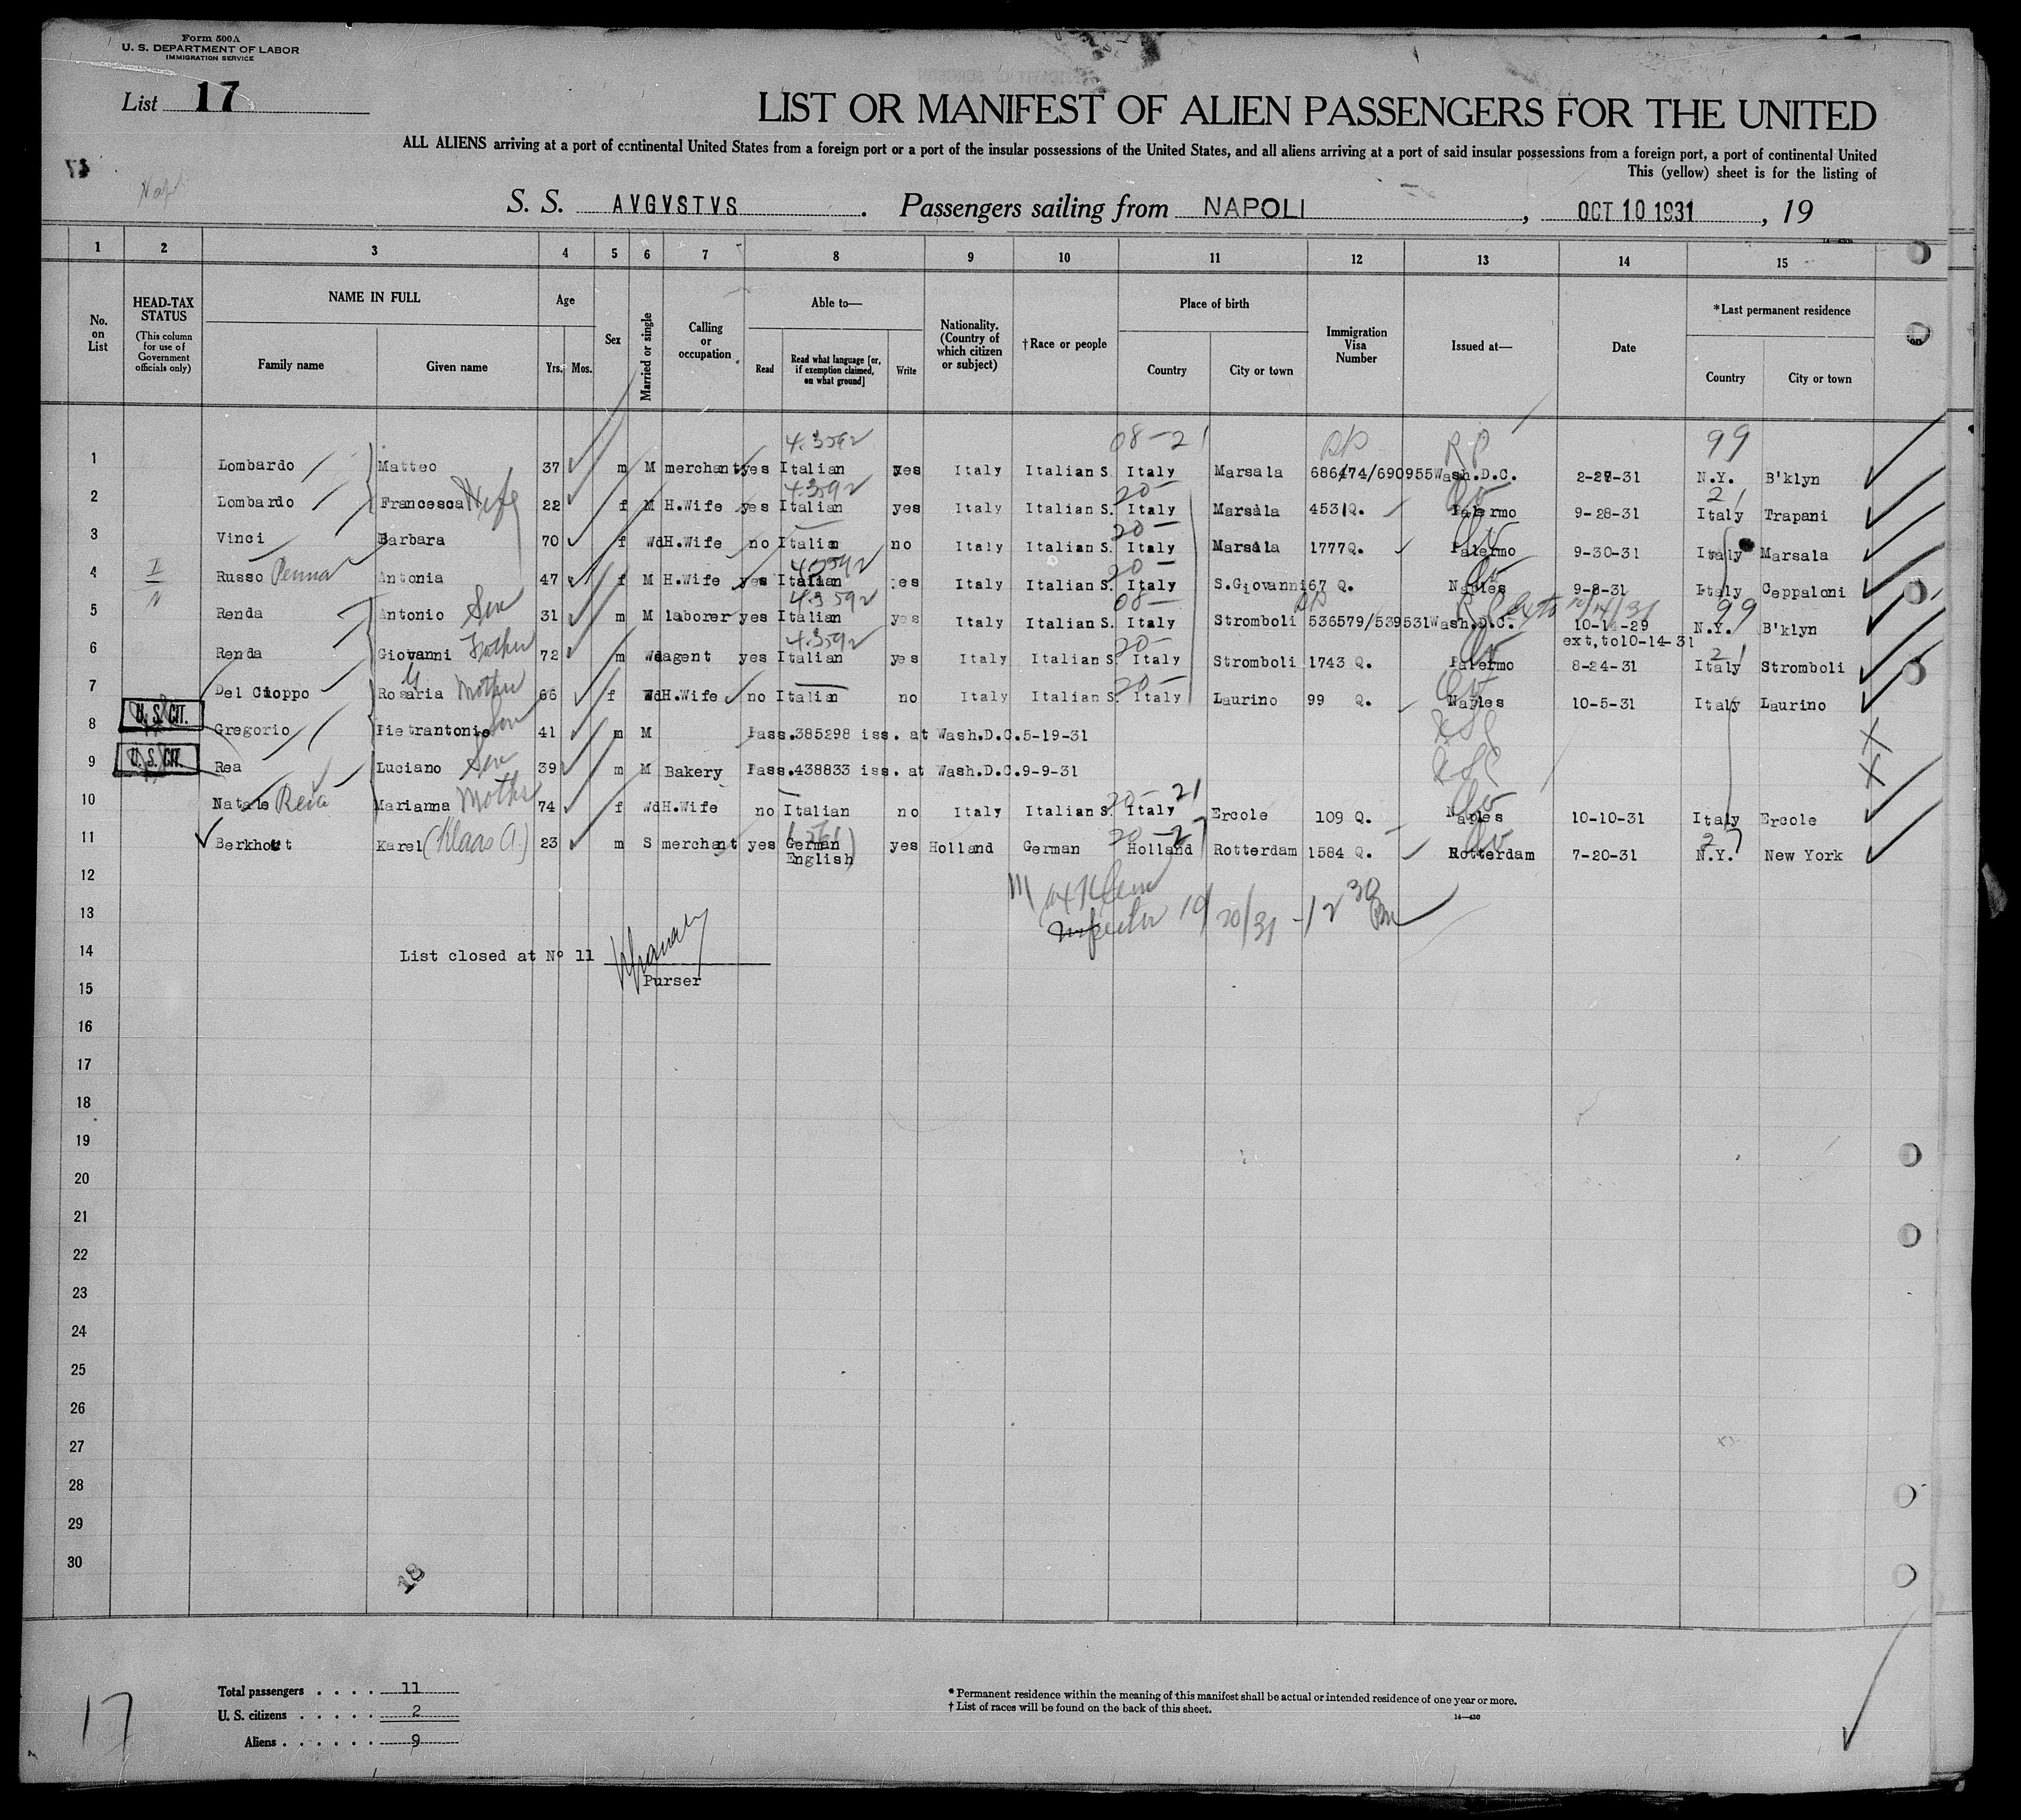 Form 500A
U. S. DEPARTMENT OF LABOR
IMMIGRATION SERVICE
List 17
LIST OR MANIFEST OF ALIEN PASSENGERS FOR THE UNITED
ALL ALIENS arriving at a port of continental United States from a foreign port or a port of the insular possessions of the United States, and all aliens arriving at a port of said insular possessions from a foreign port, a port of continental United
This (yellow) sheet is for the listing of
S. S. AVGVSTVS. Passengers sailing from NAPOLI, OCT 10 1931, 19
1 2 3 4 5 6 7 8 9 10 11 12 13 14 15
No. on List
HEAD-TAX STATUS (This column for use of Government officials only)
NAME IN FULL
Family name Given name
Age
Yrs. Mos.
Sex
Married or single
Calling or occupation
Able to—
Read Read what language [or, if exemption claimed, on what ground] Write
Nationality. (Country of which citizen or subject)
†Race or people
Place of birth
Country City or town
Immigration Visa Number
Issued at—
Date
*Last permanent residence
Country City or town
4.3592 08-21 RP 99
1 Lombardo Matteo 37 m M merchant yes Italian yes Italy Italian S. Italy Marsala 686474/690955 Wash.D.C. 2-27-31 N.Y. B'klyn
4.3592 20- 21
2 Lombardo Francesca Wife 22 f M H.Wife yes Italian yes Italy Italian S. Italy Marsala 4531Q. Palermo 9-28-31 Italy Trapani
20-
3 Vinci Barbara 70 f Wd H.Wife no Italian no Italy Italian S. Italy Marsala 1777Q. Palermo 9-30-31 Italy Marsala
4.3592 20-
4 Russo Penna Antonia 47 f M H.Wife yes Italian yes Italy Italian S. Italy S.Giovanni 67 Q. Naples 9-8-31 Italy Ceppaloni
4.3592 08- RP 10/14/31 99
5 Renda Antonio Son 31 m M laborer yes Italian yes Italy Italian S. Italy Stromboli 536579/539531 Wash.D.C. 10-14-29 N.Y. B'klyn
ext,to10-14-31
4.3592 20- 21
6 Renda Giovanni Father 72 m Wd agent yes Italian yes Italy Italian S. Italy Stromboli 1743 Q. Palermo 8-24-31 Italy Stromboli
20-
7 Del Cioppo Rosaria Mother 66 f Wd H.Wife no Italian no Italy Italian S. Italy Laurino 99 Q. Naples 10-5-31 Italy Laurino
U. S. CIT.
8 Gregorio Pietrantonio Son 41 m M Pass.385298 iss. at Wash.D.C.5-19-31
U. S. CIT.
9 Rea Luciano Son 39 m M Bakery Pass.438833 iss. at Wash.D.C.9-9-31
20-21
10 Natale Rea Marianna Mother 74 f Wd H.Wife no Italian no Italy Italian S. Italy Ercole 109 Q. Naples 10-10-31 Italy Ercole
20-27 27
11 Berkhout Karel (Klaas A.) 23 m S merchant yes German yes Holland German Holland Rotterdam 1584 Q. Rotterdam 7-20-31 N.Y. New York
English
12
13
Inspector 10/20/31 - 12 30 pm
14 List closed at Nº 11
Purser
15
16
17
18
19
20
21
22
23
24
25
26
27
28
29
30
18
17
Total passengers . . . . 11
U. S. citizens . . . . . 2
Aliens . . . . . . 9
* Permanent residence within the meaning of this manifest shall be actual or intended residence of one year or more.
† List of races will be found on the back of this sheet.
14—430